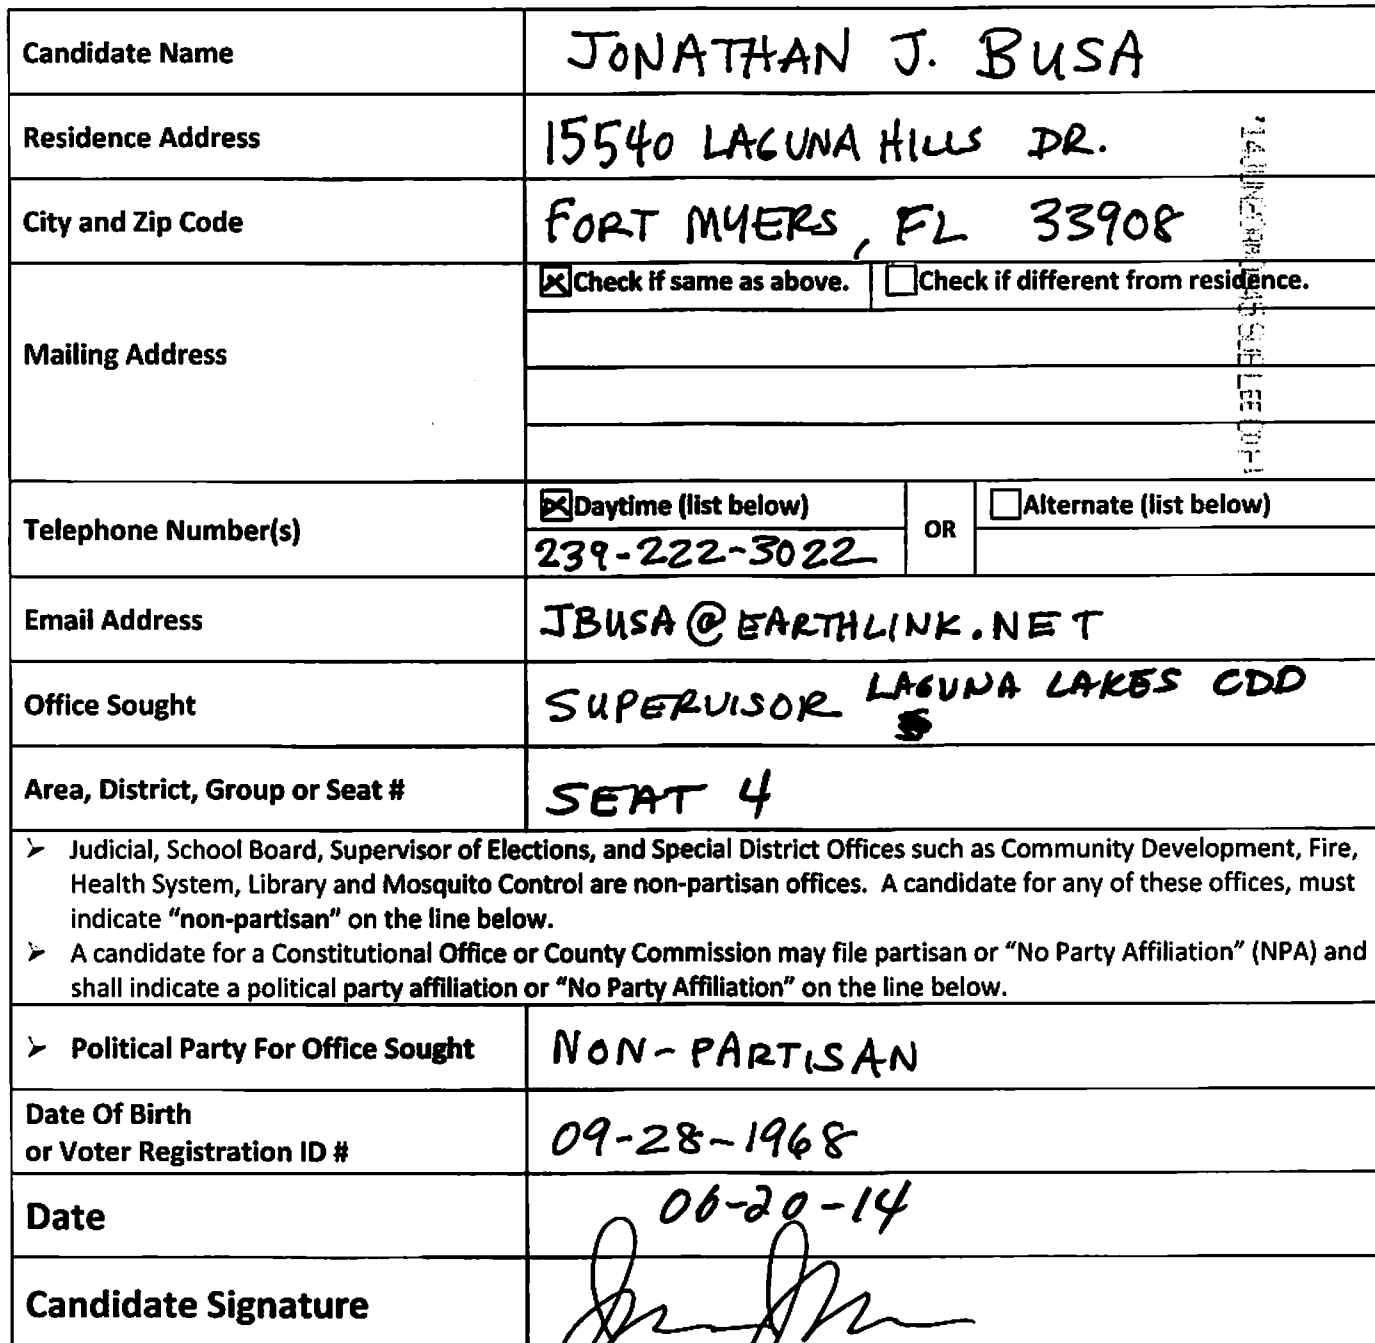 Candidate Name JONATHAN J. BUSA
Residence Address 15540 LAGUNA HILLS DR.
City and Zip Code FORT MYERS, FL 33908
☒ Check if same as above. ☐ Check if different from residence.
Mailing Address
☒ Daytime (list below) OR ☐ Alternate (list below)
Telephone Number(s) 239-222-3022
Email Address JBUSA@EARTHLINK.NET
Office Sought SUPERVISOR LAGUNA LAKES CDD
Area, District, Group or Seat # SEAT 4
➢ Judicial, School Board, Supervisor of Elections, and Special District Offices such as Community Development, Fire,
Health System, Library and Mosquito Control are non-partisan offices. A candidate for any of these offices, must
indicate "non-partisan" on the line below.
➢ A candidate for a Constitutional Office or County Commission may file partisan or "No Party Affiliation" (NPA) and
shall indicate a political party affiliation or "No Party Affiliation" on the line below.
➢ Political Party For Office Sought NON-PARTISAN
Date Of Birth
or Voter Registration ID # 09-28-1968
Date 06-20-14
Candidate Signature